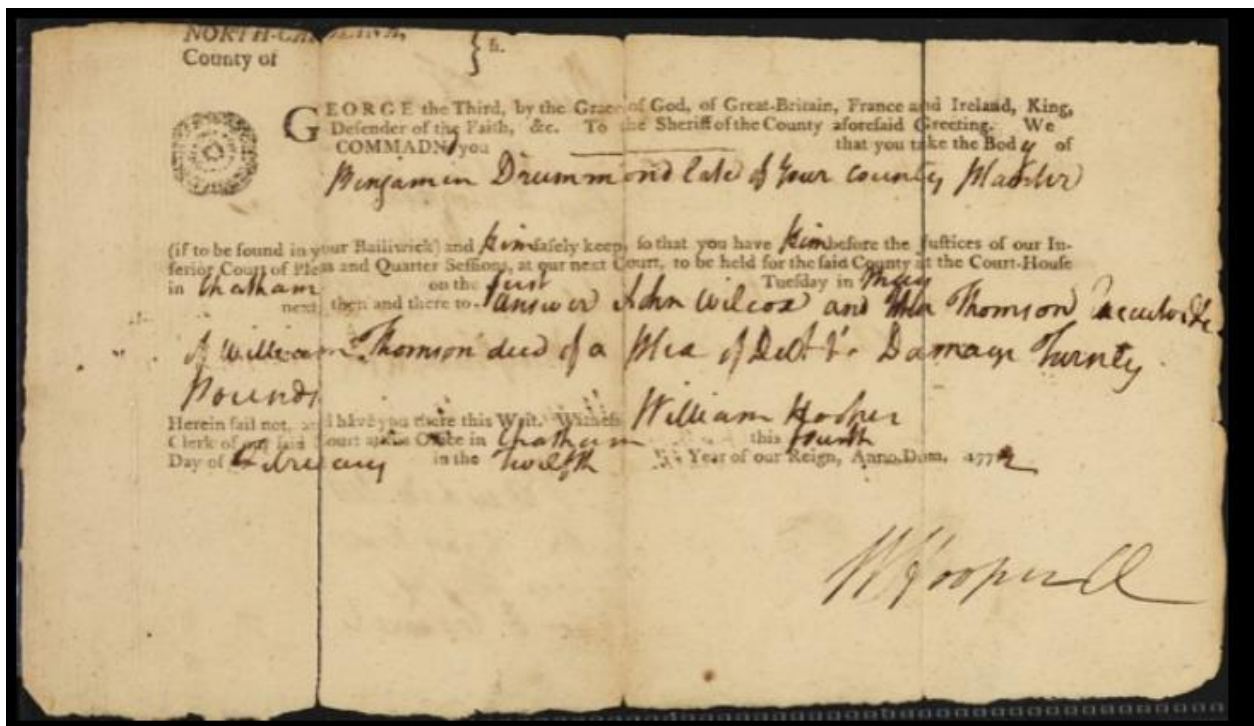 NORTH-CAROLINA,
County of } ss.
GEORGE the Third, by the Grace of God, of Great-Britain, France and Ireland, King,
Defender of the Faith, &c. To the Sheriff of the County aforesaid Greeting. We
COMMADN you that you take the Body of
Benjamin Drummond late of Your County Planter
(if to be found in your Bailiwick) and him safely keep, so that you have him before the Justices of our In-
ferior Court of Pleas and Quarter Sessions, at our next Court, to be held for the said County at the Court-House
in Chatham on the first Tuesday in May
next, then and there to answer John Wilcox and Thomson
of William Thomson decd of a Plea of Debt Damage Twenty
Pounds
Herein fail not, and have you there this Writ. Witness William Hooper
Clerk of our said Court at the Office in Chatham this fourth
Day of February in the twelfth Year of our Reign, Anno. Dom. 1772
W Hooper Cl